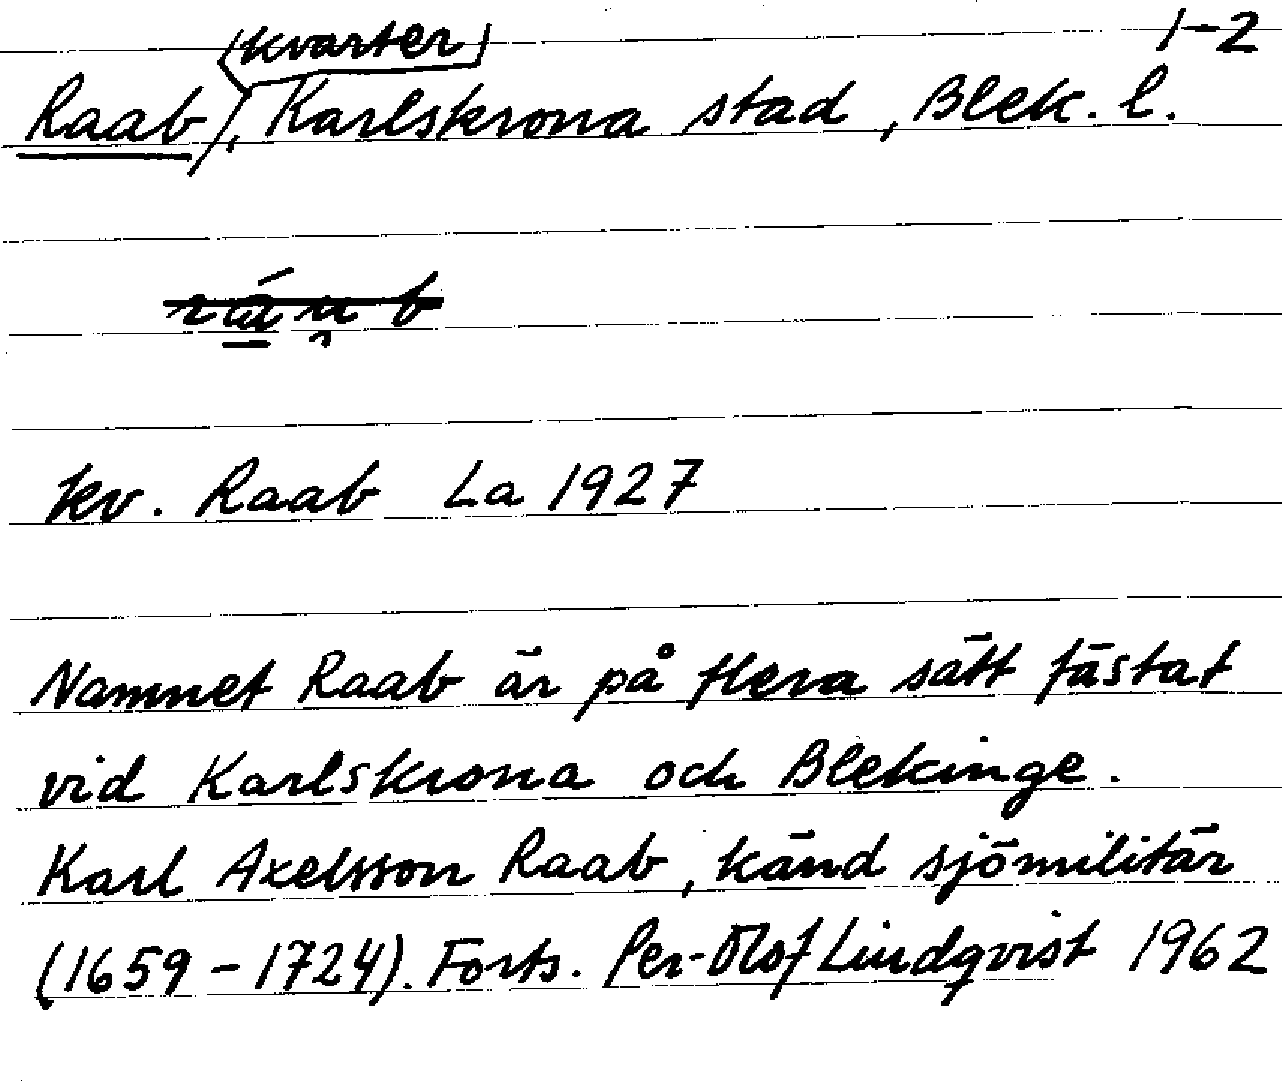 (kvarter) 1-2
Raab, Karlskrona stad, Blek. l.
kv. Raab La 1927
Namnet Raab är på flera sätt fästat
vid Karlskrona och Blekinge.
Karl Axelsson Raab, känd sjömilitär
(1659-1724). Forts. Per-Olof Lindqvist 1962